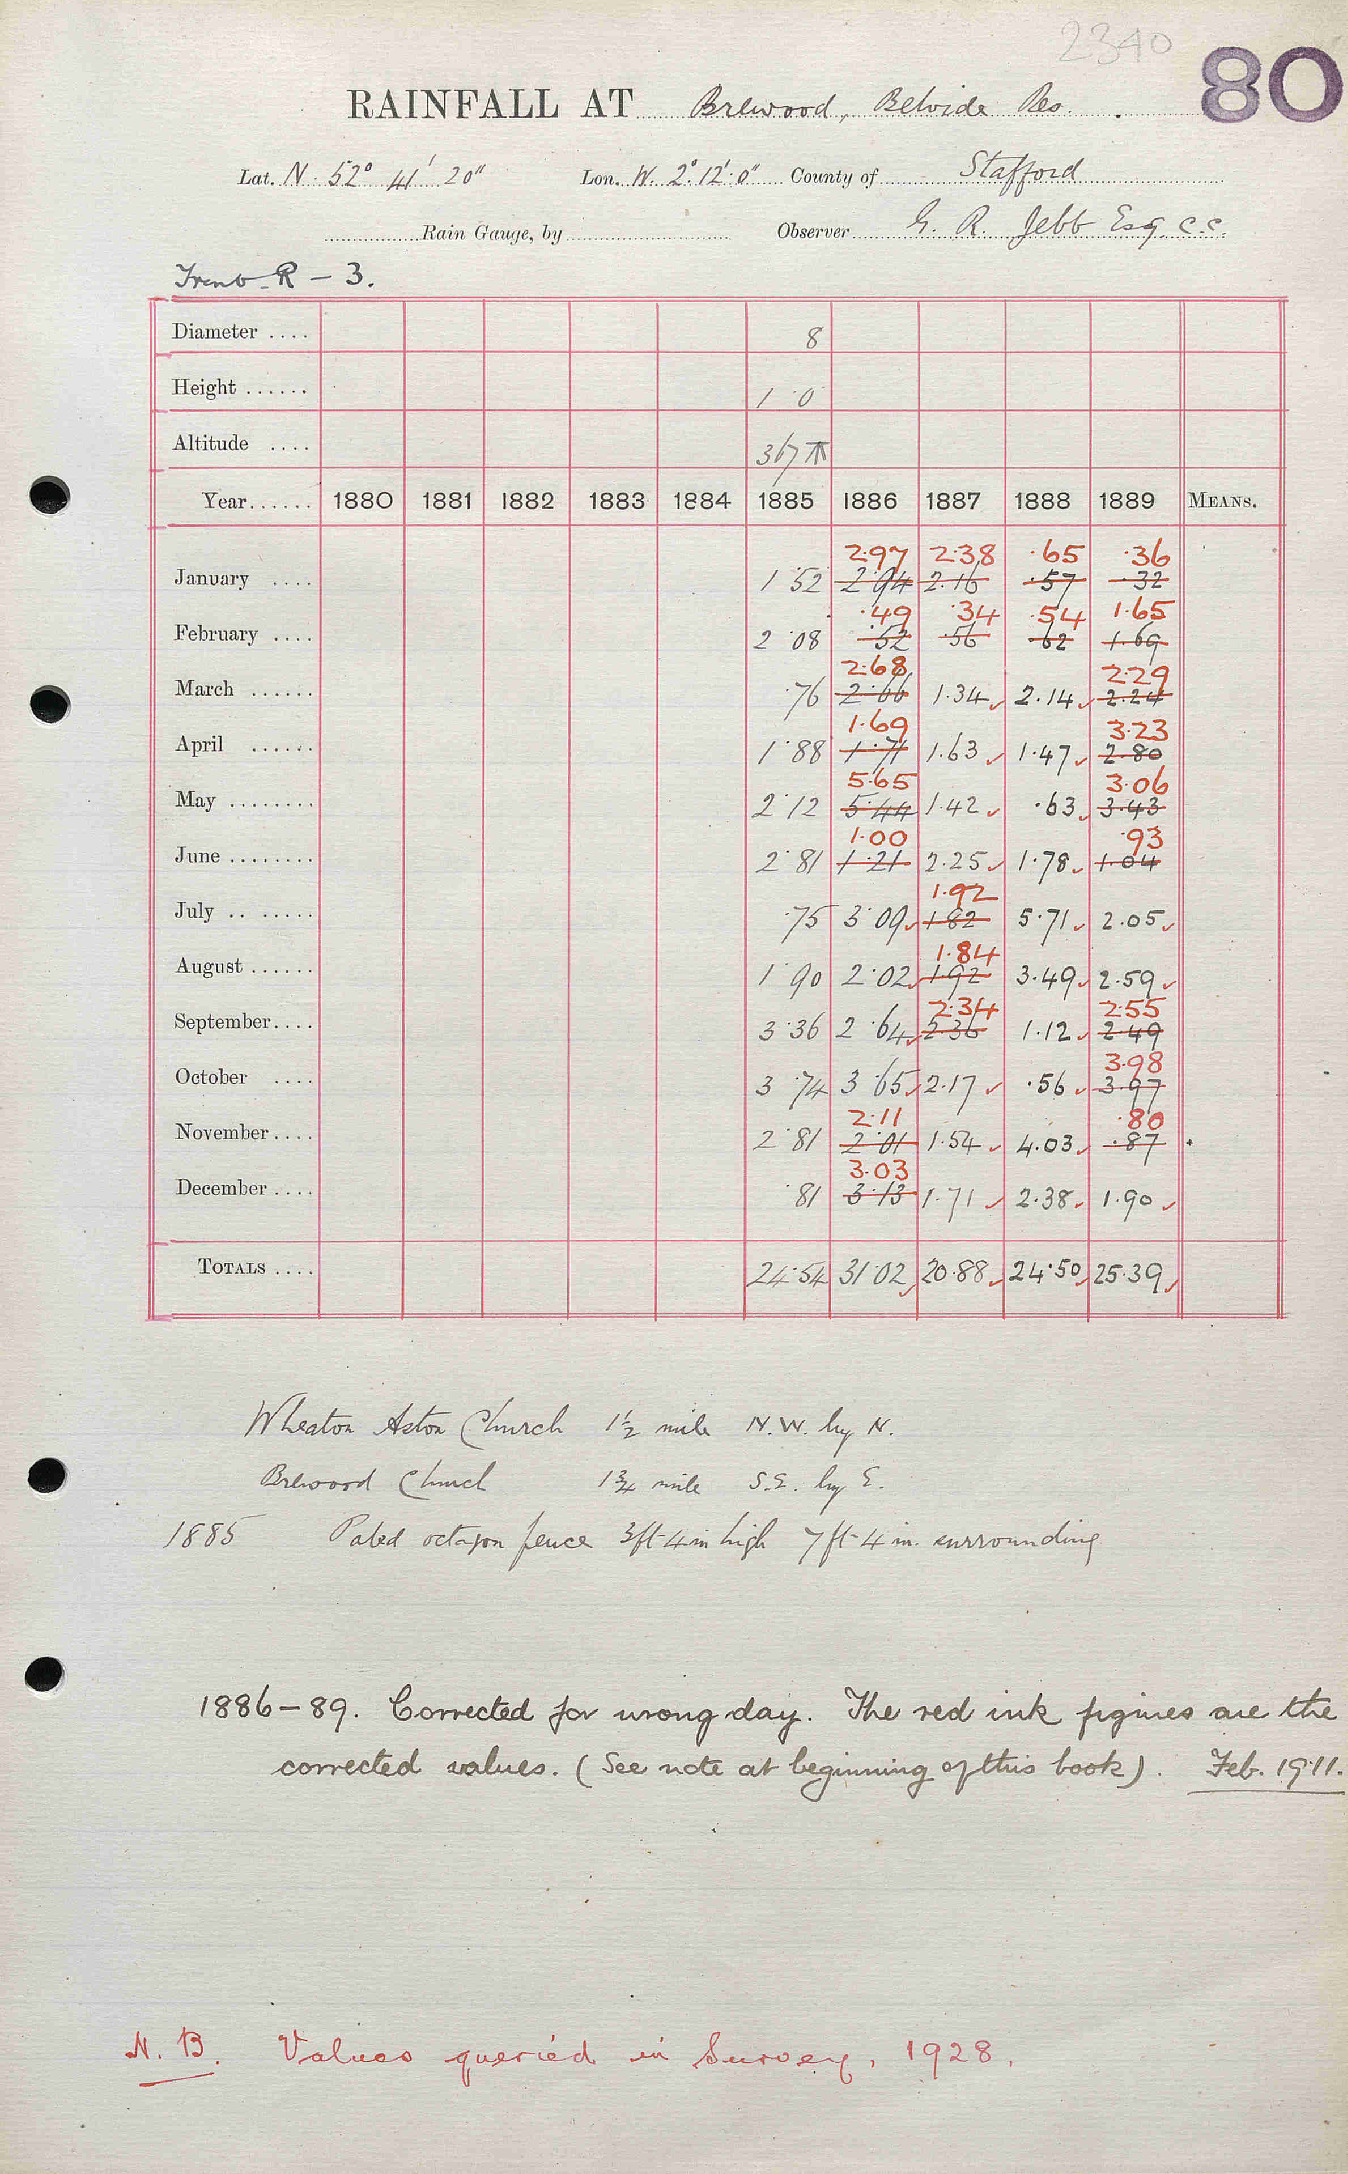 2340
80
RAINFALL AT Brewood, Belvide Res.
Lat. N. 52° 41' 20" Lon. W. 2° 12' 0" County of Stafford
Rain Gauge, by Observer G. R. Jebb Esq. C.E.
Trent R – 3.
Diameter .... 8
Height ...... 1 0
Altitude .... 367
Year...... 1880 1881 1882 1883 1884 1885 1886 1887 1888 1889 MEANS.
2.97 2.38 .65 .36
January .... 1.52 2.94 2.16 .57 .32
.49 .34 .54 1.65
February .... 2.08 .52 .56 .62 1.69
2.68 2.29
March ...... .76 2.66 1.34 2.14 2.24
1.69 3.23
April ...... 1.88 1.71 1.63 1.47 2.80
5.65 3.06
May ........ 2.12 5.44 1.42 .63 3.43
1.00 .93
June ........ 2.81 1.21 2.25 1.78 1.04
1.92
July .. ...... .75 3.09 1.82 5.71 2.05
1.84
August ...... 1.90 2.02 1.92 3.49 2.59
2.34 2.55
September.... 3.36 2.64 2.36 1.12 2.49
3.98
October .... 3.74 3.65 2.17 .56 3.97
2.11 .80
November.... 2.81 2.01 1.54 4.03 .87
3.03
December.... .81 3.13 1.71 2.38 1.90
TOTALS .... 24.54 31.02 20.88 24.50 25.39
Wheaton Aston Church 1½ mile N.W. by N.
Brewood Church 1¾ mile S.E. by E.
1885 Paled octagon fence 3ft 4in high 7ft 4in. surrounding
1886–89. Corrected for wrong day. The red ink figures are the
corrected values. (See note at beginning of this book). Feb. 1911.
N.B. Values queried in Survey, 1928.